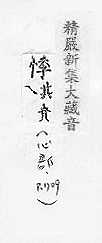 精嚴新集大藏音
悸其(心部、P.1709)